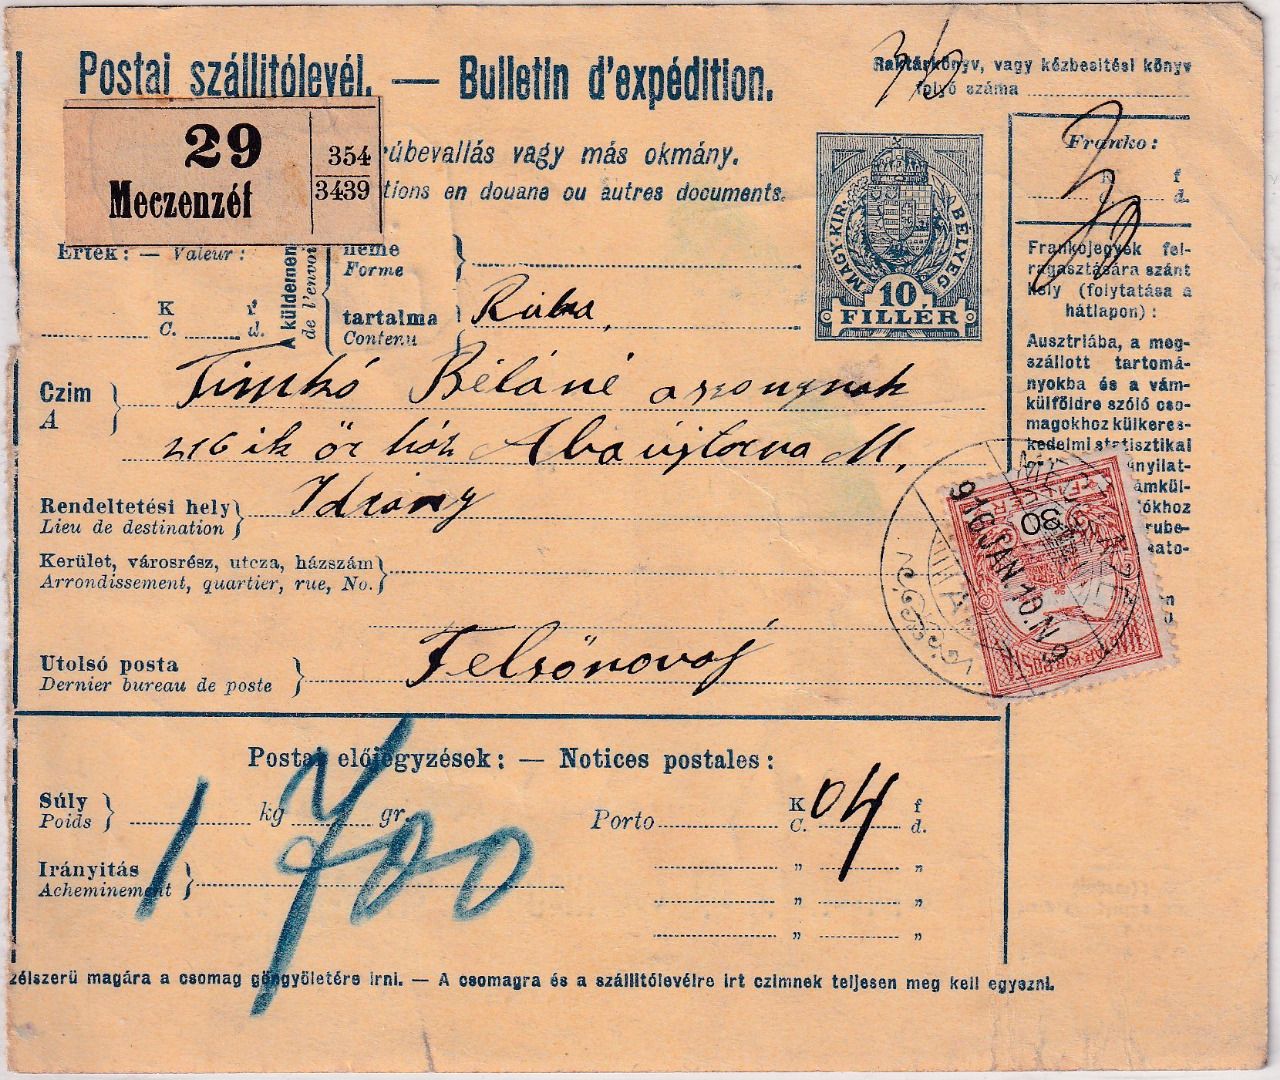 Postai szállitólevél. — Bulletin d'expédition.
Raktárkönyv, vagy kézbesitési könyv
folyó száma
29
Meczenzéf
354
3439
rúbevallás vagy más okmány.
tions en douane ou autres documents.
MAGY. KIR. BÉLYEG
10
FILLÉR
Franko:
K f
d.
30
Érték: — Valeur:
K f
C. d.
A küldemény
de l'envoi
neme
Forme
tartalma
Contenu
Ruha,
Frankójegyek fel-
ragasztására szánt
hely (folytatása a
hátlapon):
Ausztriába, a meg-
szállott tartomá-
nyokba és a vám-
külföldre szóló cso-
magokhoz külkeres-
kedelmi statisztikai
nyilat-
ámkül-
ókhoz
rube-
sato-
Czim
A
Timkó Béláné asszonynak
216 ik őr ház Abaújtorna M,
Rendeltetési hely
Lieu de destination
Idrány
Kerület, városrész, utcza, házszám
Arrondissement, quartier, rue, No.
Utolsó posta
Dernier bureau de poste
Felsőnovaj
30
916 JAN. 10. N 9
Postai előjegyzések: — Notices postales:
Súly
Poids
kg gr.
1 700
Porto
K 04 f
C. d.
" "
Irányitás
Acheminement
" "
" "
zélszerü magára a csomag göngyöletére irni. — A csomagra és a szállitólevélre irt czimnek teljesen meg kell egyezni.